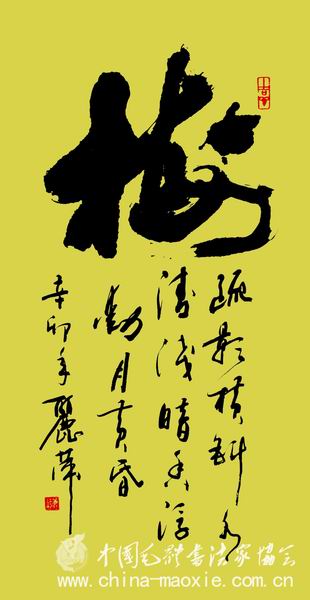 梅
疏影横斜水
清浅暗香浮
動月黄昏
辛卯年麗萍
中国毛体书法家协会
www.china-maoxie.com.cn